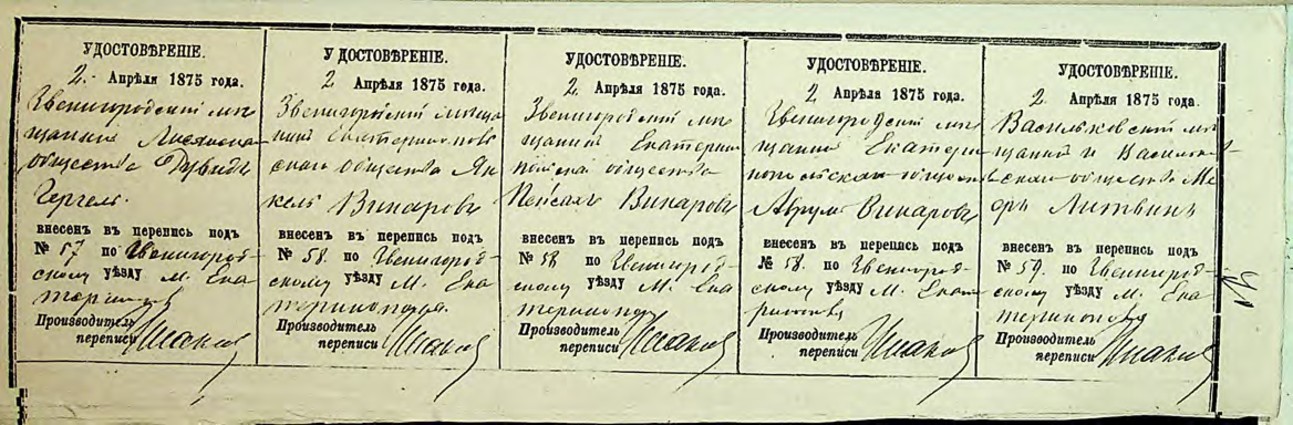 УДОСТОВѢРЕНІЕ.
2. Апрѣля 1875 года.
Звенигородскій мѣ
щанинъ Лисянска
общества Дувидъ
Гергель.
внесенъ въ перепись подъ
№ 57 по Звенигород-
скому уѣзду М. Ека
Производитель
переписи
УДОСТОВѢРЕНІЕ.
2 Апрѣля 1875 года.
Звенигородскій мѣща
нинъ Екатеринопо
скаго общества Ян
кель Винаровъ
внесенъ въ перепись подъ
№ 58. по Звенигород-
скому уѣзду М. Ека
теринополя.
Производитель
переписи
УДОСТОВѢРЕНІЕ.
2. Апрѣля 1875 года.
Звенигородскій мѣ
щанинъ Екатерин
общества
Пейсахъ Винаровъ
внесенъ въ перепись подъ
№ 58 по Звенигород-
скому уѣзду М. Ека
теринопол
Производитель
переписи
УДОСТОВѢРЕНІЕ.
2 Апрѣля 1875 года.
Звенигородскій мѣ
щанинъ Екатери
нопольскаго общества
Аврумъ Винаровъ
внесенъ въ перепись подъ
№ 58. по Звенигород-
скому уѣзду М. Екате
Производитель
переписи
УДОСТОВѢРЕНІЕ.
2. Апрѣля 1875 года.
Васильковскій мѣ
щанинъ и Васильков
скаго общества Ме
еръ Литвинъ
внесенъ въ перепись подъ
№ 59. по Звенигород-
скому уѣзду М. Ека
теринополя
Производитель
переписи